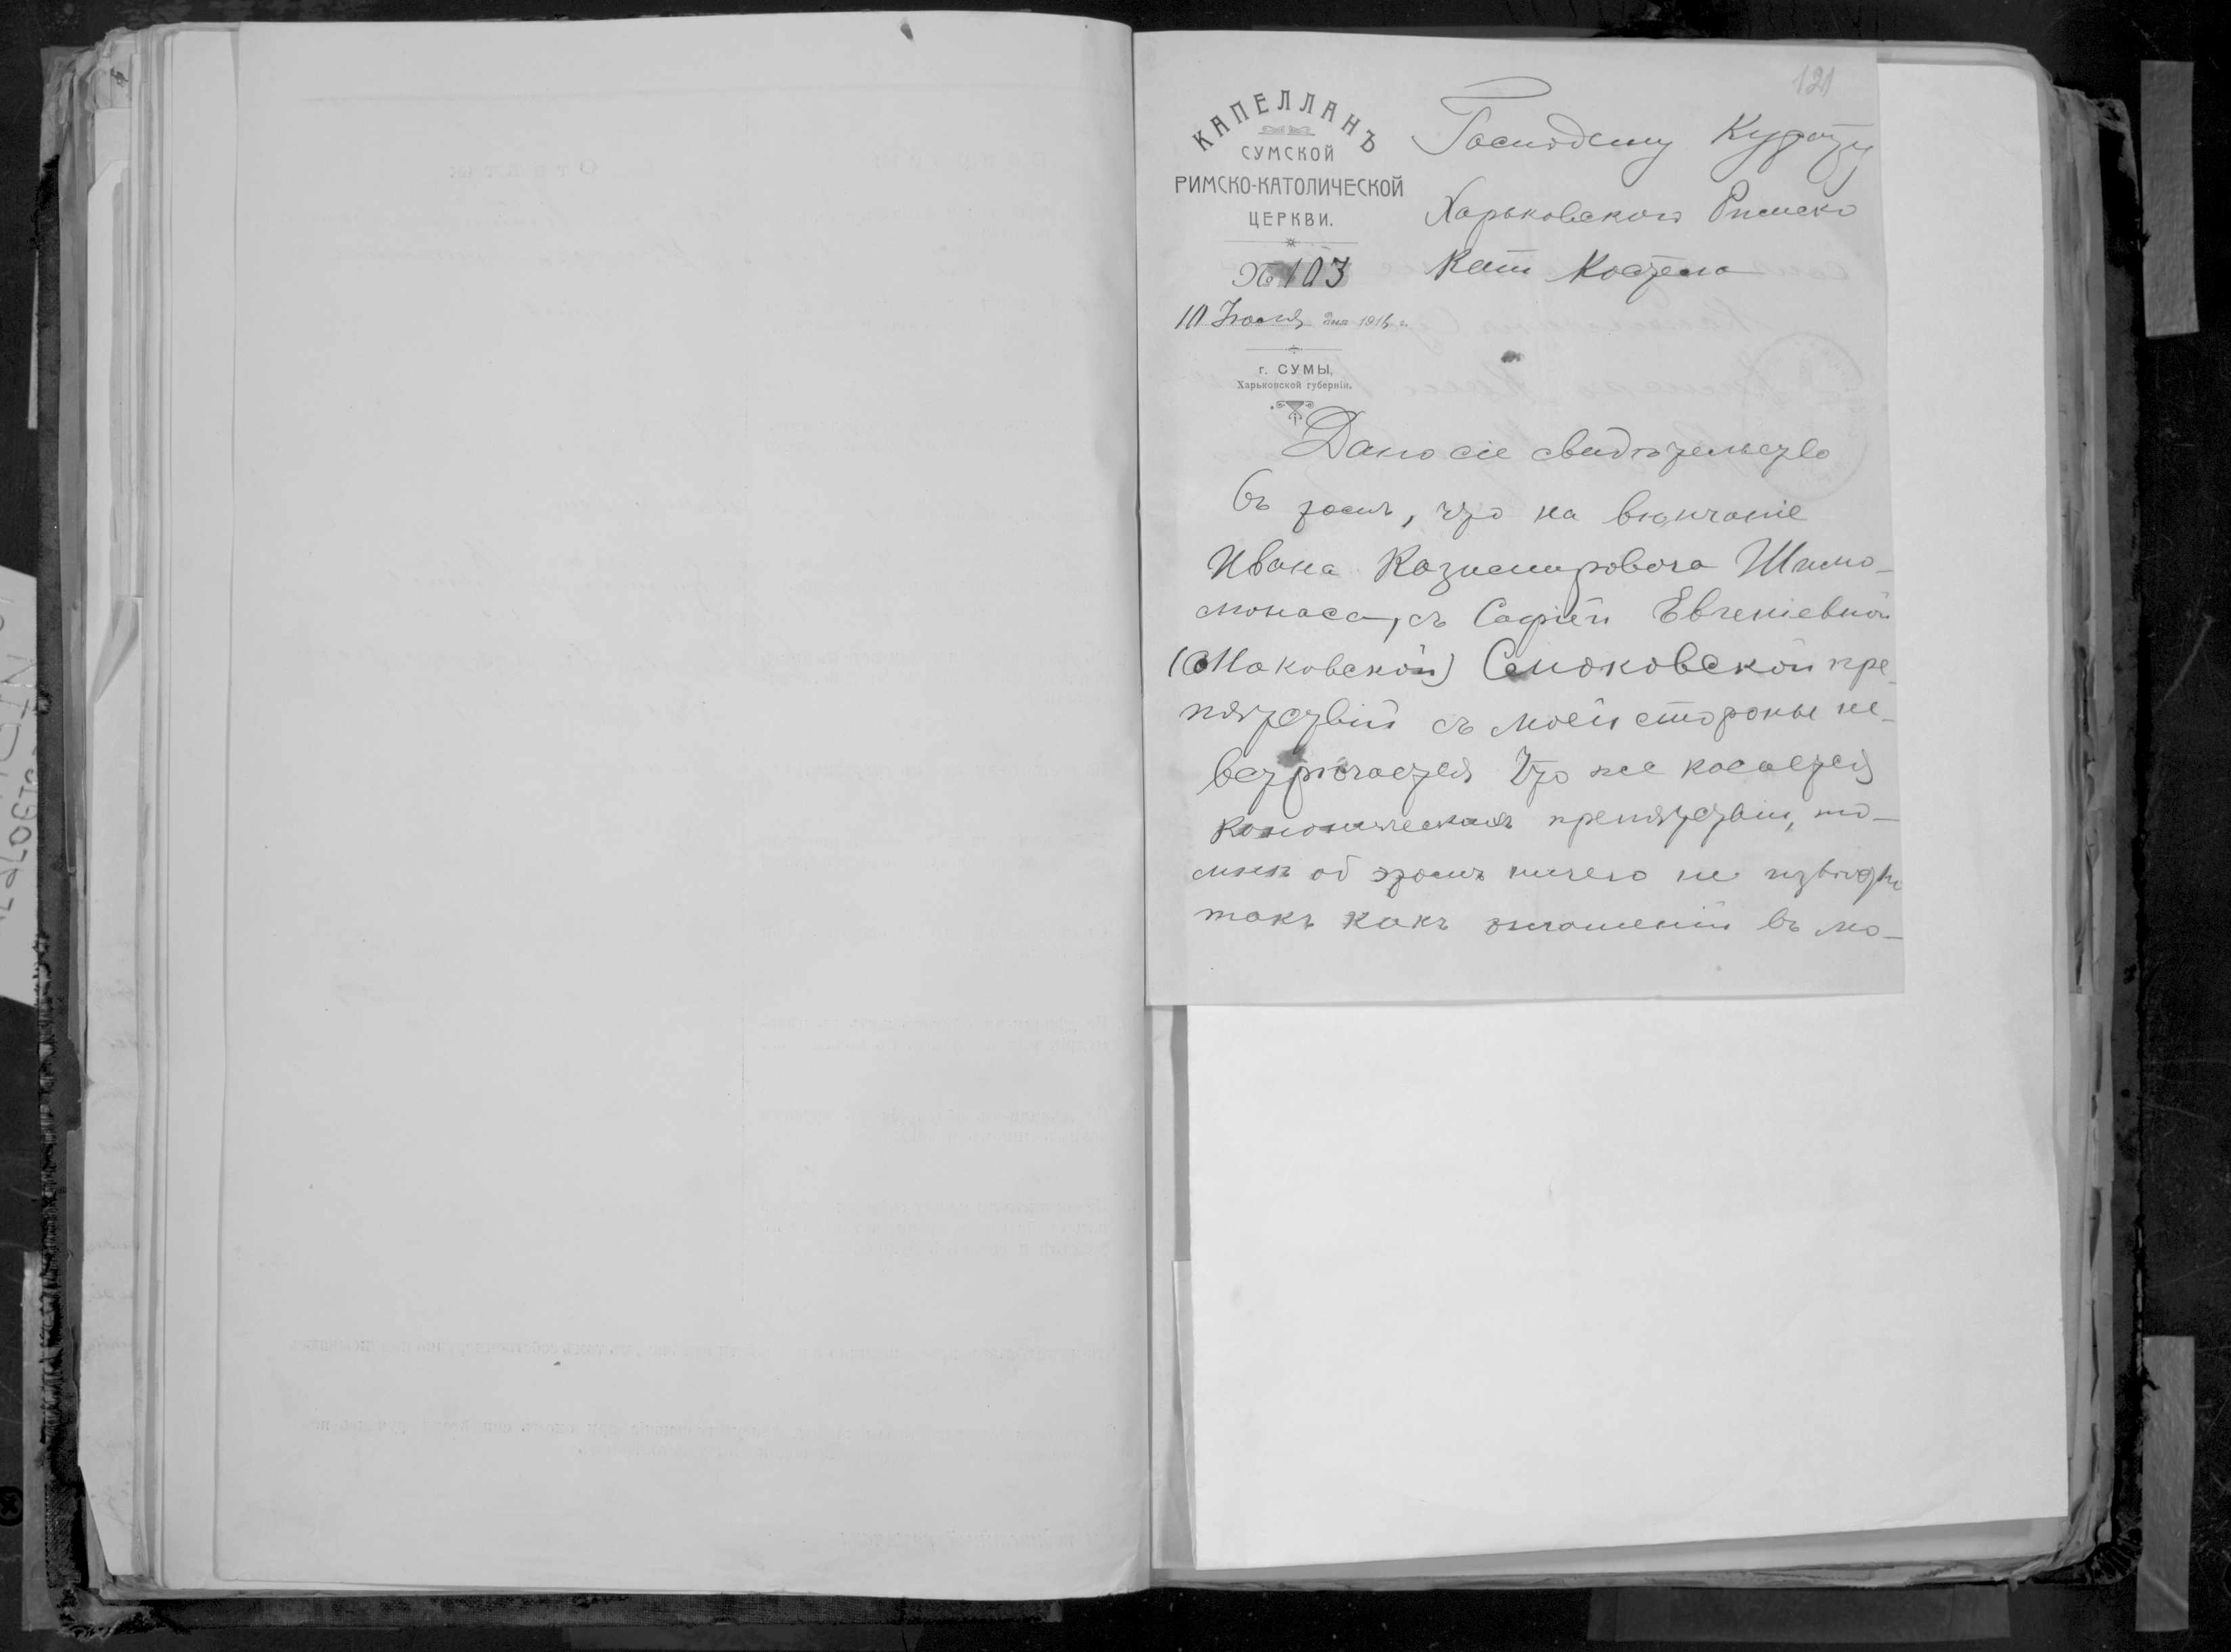 121
КАПЕЛЛАНЪ
СУМСКОЙ
РИМСКО-КАТОЛИЧЕСКОЙ
ЦЕРКВИ.
№ 103
10 Іюля дня 1916 г.
г. СУМЫ,
Харьковской губерніи.
Господину Курату
Харьковского Римско
Кат Костела
Дано сіе свидѣтельство
въ томъ, что на вѣнчаніе
Ивана Казимировича Шимо-
монаса, съ Софіей Евгеніевной
(Маковской) Смоковской пре-
пятствій съ моей стороны не-
встрѣчается Что же касается
каноническихъ препятствій, то-
мнѣ об этомъ ничего не извѣстно
такъ какъ оглашеній въ мо-